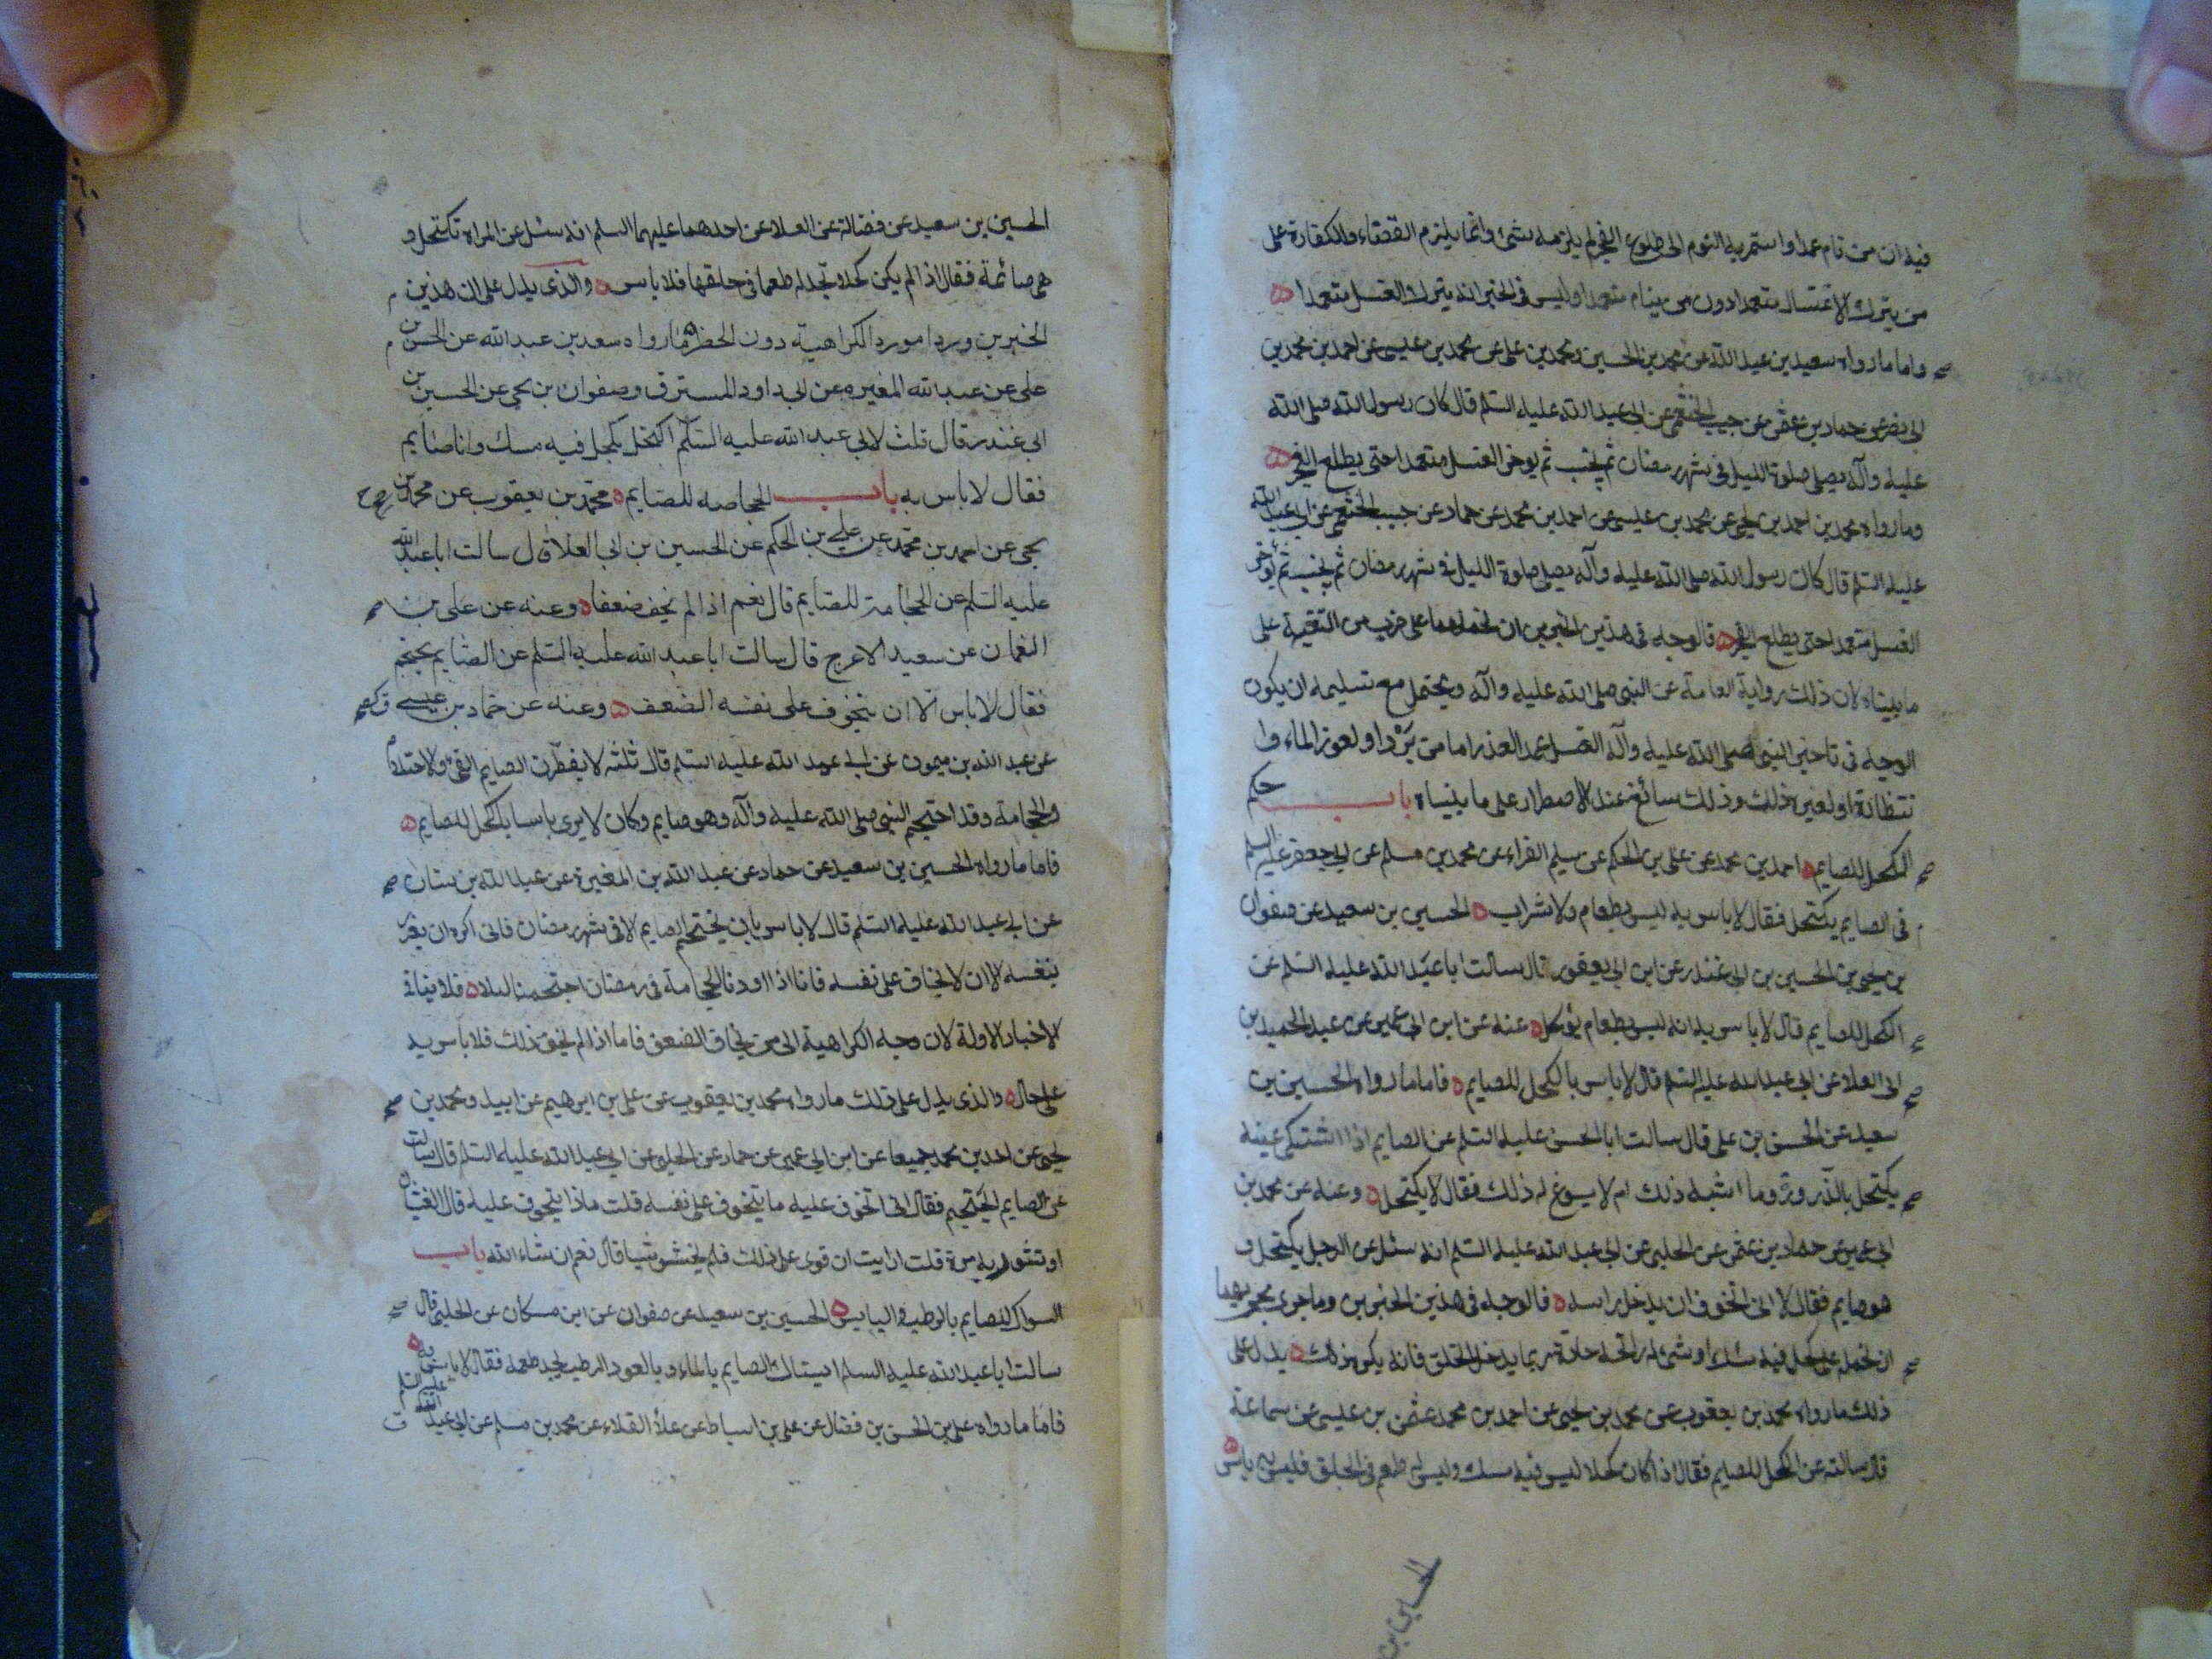 فيه ان من نام عمدا واستمر به النوم الى طلوع الفجر لم يلزمه شئ وانما يلزم القضاء والكفارة على
من يترك الاغتسال متعمدا دون من ينام متعمدا وليس فى الخبر انه يترك الغسل متعمدا ه
واما ما رواه سعيد بن عبد الله عن محمد بن الحسين ومحمد بن على عن محمد بن عيسى عن احمد بن محمد بن
ابى نصر عن حماد بن عثمن عن حبيب الخثعمى عن ابى عبد الله عليه السلم قال كان رسول الله صلى الله
عليه وآله يصلى صلوة الليل فى شهر رمضان ثم يجنب ثم يوخر الغسل متعمدا حتى يطلع الفجر ه
وما رواه محمد بن احمد بن يحيى عن محمد بن عيسى عن احمد بن محمد عن حماد عن حبيب الخثعمى عن ابى عبد الله
عليه السلم قال كان رسول الله صلى الله عليه وآله يصلى صلوة الليل فى شهر رمضان ثم يجنب ثم يؤخر
الغسل متعمدا حتى يطلع الفجر ه فالوجه فى هذين الخبرين ان نحملهما على ضرب من التقية على
ما بيناه لان ذلك رواية العامة عن النبى صلى الله عليه وآله ويحتمل مع تسليمه ان يكون
الوجه فى تاخير النبى صلى الله عليه وآله الغسل عمدا لعذر اما من برد او لعوز الماء وا
نتظاره او لغير ذلك وذلك سائغ عند الاضطرار على ما بيناه باب حكم
الكحل للصايم ه احمد بن محمد عن على بن الحكم عن سليم الفراء عن محمد بن مسلم عن ابى جعفر عليه السلم
فى الصايم يكتحل فقال لا باس به ليس بطعام ولا شراب ه الحسين بن سعيد عن صفوان
بن يحيى بن الحسين بن ابى غندر عن ابن ابى يعفور قال سالت ابا عبد الله عليه السلم عن
الكحل للصايم قال لا باس به انه ليس بطعام يؤكل ه عنه عن ابن ابى عمير عن عبد الحميد بن
ابى العلا عن ابى عبد الله عليه السلم قال لا باس بالكحل للصايم ه فاما ما رواه الحسين بن
سعيد عن الحسن بن على قال سالت ابا الحسن عليه السلم عن الصايم اذا اشتكى عينه
يكتحل بالذرور وما اشبهه ذلك ام لا يسوغ له ذلك فقال لا يكتحل ه وعنه عن محمد بن
ابى عمير عن حماد بن عثمن عن الحلبى عن ابى عبد الله عليه السلم انه سئل عن الرجل يكتحل و
هو صايم فقال لا انى اتخوف ان يدخل راسه ه فالوجه فى هذين الخبرين وما جرى مجريهما
ان نحمله على كحل فيه مسك او شئ له رائحة حادة ربما يدخل الحلق فانه يكره ذلك ه يدل على
ذلك ما رواه محمد بن يعقوب عن محمد بن يحيى عن احمد بن محمد عثمن بن عيسى عن سماعة
قال سالته عن الكحل للصايم فقال اذا كان كحلا ليس فيه مسك وليس له طعم فى الحلق فليس به باس ه
الحسين بن
الحسين بن سعيد عن فضالة عن العلا عن احدهما عليهما السلم انه سئل عن المراة تكتحل و
هى صائمة فقال اذا لم يكن كحلا تجد له طعما فى حلقها فلا باس ه والذى يدل على ان هذين
الخبرين وردا مورد الكراهية دون الحظر ما رواه سعد بن عبد الله عن الحسن بن
على عن عبد الله المغيرة عن ابى داود المسترق وصفوان بن يحيى عن الحسين بن
ابى غندر قال قلت لابى عبد الله عليه السلم اكتحل بكحل فيه مسك وانا صايم
فقال لا باس به باب الحجامه للصايم ه محمد بن يعقوب عن محمد بن
يحيى عن احمد بن محمد عن على بن الحكم عن الحسين بن ابى العلا قال سالت ابا عبد الله
عليه السلم عن الحجامة للصايم قال نعم اذا لم يخف ضعفا ه وعنه عن على بن
النعمان عن سعيد الاعرج قال سالت ابا عبد الله عليه السلم عن الصايم يحتجم
فقال لا باس الا ان يتخوف على نفسه الضعف ه وعنه عن حماد بن عيسى
عن عبد الله بن ميمون عن ابى عبد الله عليه السلم قال ثلثه لا يفطرن الصايم القئ والاحتلام
والحجامة وقد احتجم النبى صلى الله عليه وآله وهو صايم وكان لا يرى باسا بالكحل للصايم ه
فاما ما رواه الحسين بن سعيد عن حماد عن عبد الله بن المغيرة عن عبد الله بن سنان
عن ابى عبد الله عليه السلم قال لا باس بان يحتجم الصايم الا فى شهر رمضان فانى اكره ان يغرر
بنفسه الا ان لا يخاف على نفسه فانا اذا اردنا الحجامة فى رمضان احتجمنا ليلا ه فلا ينافى
الاخبار الاولة لان وجه الكراهية الى من يخاف الضعف فاما اذا لم يخف ذلك فلا باس به
على حال ه والذى يدل على ذلك ما رواه محمد بن يعقوب عن على بن ابرهيم عن ابيه ومحمد بن
يحيى عن احمد بن محمد جميعا عن ابن ابى عمير عن حماد عن الحلبى عن ابى عبد الله عليه السلم قال سالت
عن الصايم ايحتجم فقال انى اتخوف عليه ما يتخوف على نفسه قلت ماذا يتخوف عليه قال الغثيان
او تثور به مرة قلت ارايت ان قوى على ذلك فلم يخش شيا قال نعم ان شاء الله باب
السواك للصايم بالرطب واليابس ه الحسين بن سعيد عن صفوان عن ابن مسكان عن الحلبى قال
سالت ابا عبد الله عليه السلم ايستاك الصايم بالماء وبالعود الرطب يجد طعمه فقال لا باس به ه
فاما ما رواه على بن الحسن بن فضال عن على بن اسباط عن علا القلاء عن محمد بن مسلم عن ابى عبد الله عليه السلم